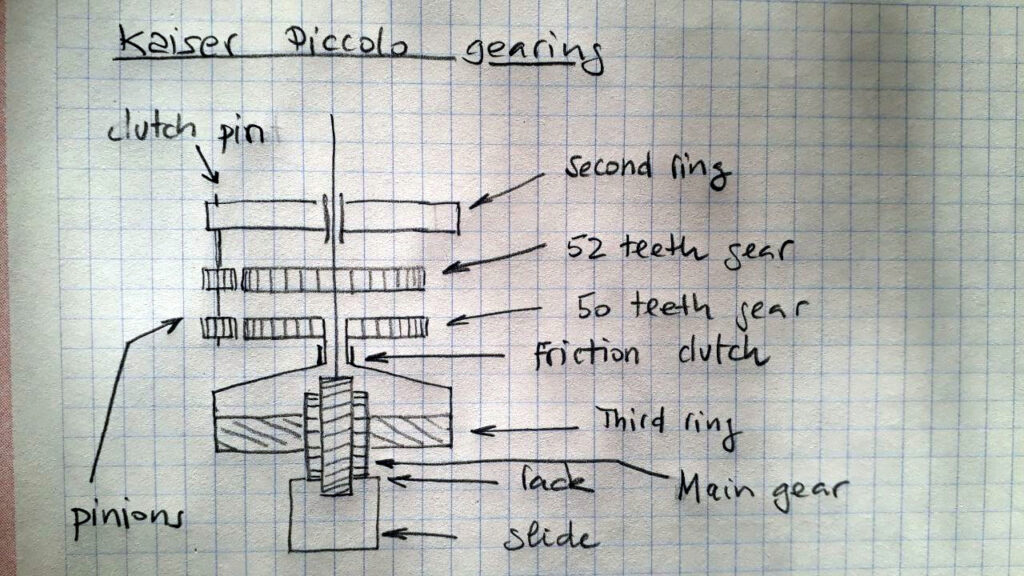 Kaiser Piccolo gearing
clutch pin
second ring
52 teeth gear
50 teeth gear
friction clutch
Third ring
rack
Main gear
pinions
slide